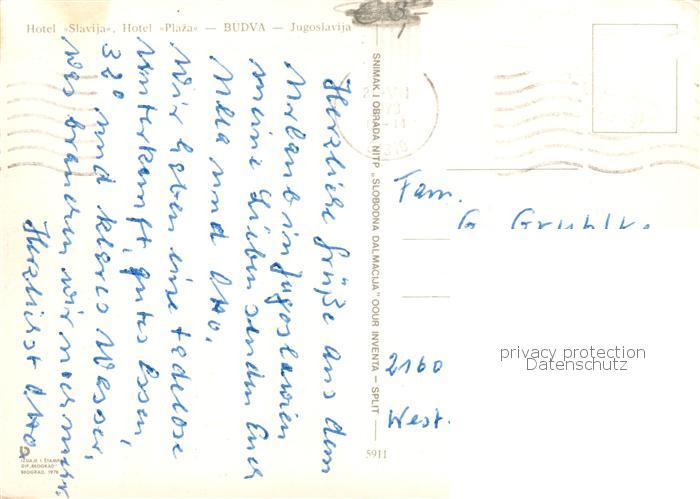 Hotel »Slavija«, Hotel »Plaža« — BUDVA — Jugoslavija
Herzliche Grüße aus dem
Urlaub in Jugoslawien
meine Lieben senden Euch
und Otto.
Wir haben eine tadelose
Unterkunft, gutes Essen,
32° und klares Wasser,
was brauchen wir noch mehr.
Herzlichst Otto
SNIMAK I OBRADA NITP „SLOBODNA DALMACIJA" OOUR INVENTA — SPLIT
Fam.
G.
2160
West.
privacy protection
Datenschutz
5911
IZDAJE I ŠTAMPA
GIP „BEOGRAD"
BEOGRAD, 1978